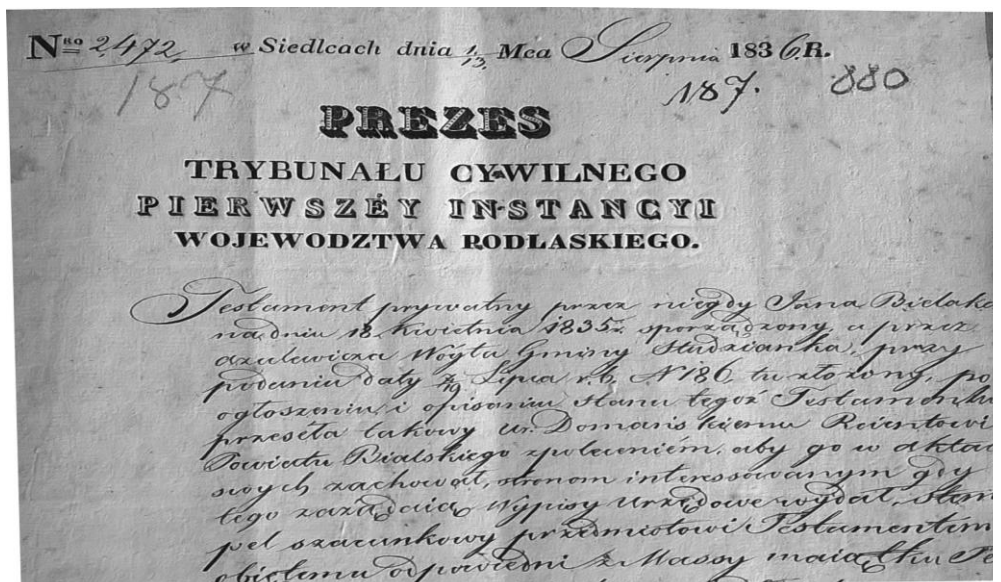 Nro 2472, w Siedlcach dnia 1/13 Mca Sierpnia 1836 R.
187 187. 880
PREZES
TRYBUNAŁU CYWILNEGO
PIERWSZÉY INSTANCYI
WOJEWODZTWA PODLASKIEGO.
Testament prywatny przez niegdy Jana Bielaka
na dniu 18. Kwietnia 1835 r. sporządzony, a przez
azulewicza Wóyta Gminy Studzianka, przy
podaniu daty Lipca r. b. N 186 tu złożony, po
ogłoszeniu i opisaniu stanu tegoż Testamentu
przeséła takowy ur. Domańskiemu Reientowi
Powiatu Bialskiego z poleceniem, aby go w aktach
swych zachował, stronom interessowanym gdy
tego zażądaią Wypisy Urzędowe wydał, stem
pel szacunkowy przedmiotowi Testamentem
obiętemu odpowiedni z Massy maiątku